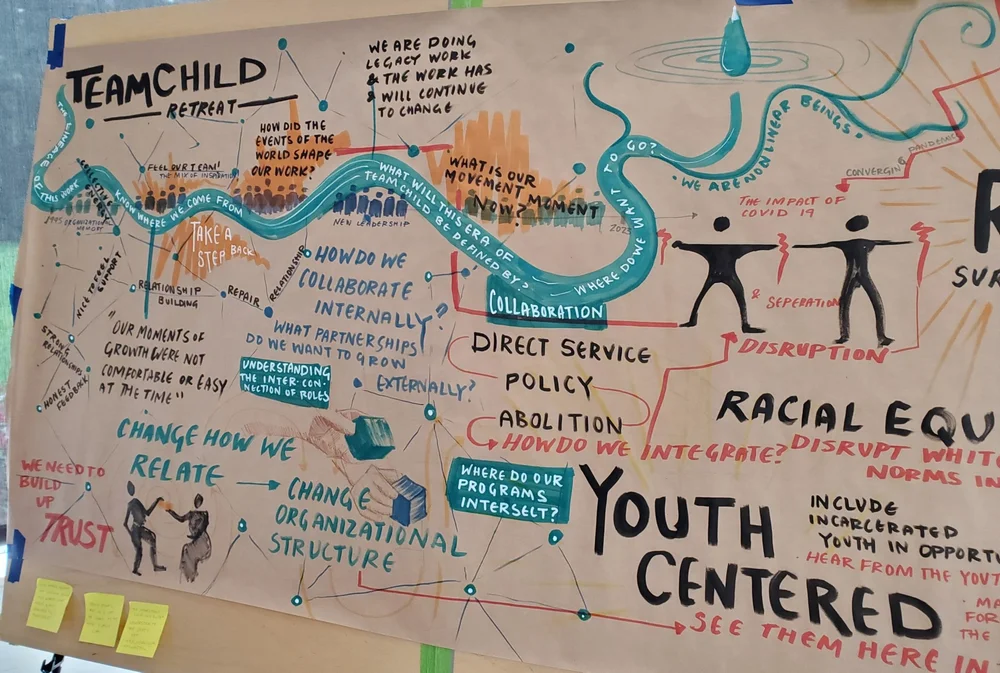 TEAMCHILD
RETREAT
WE ARE DOING
LEGACY WORK
& THE WORK HAS
& WILL CONTINUE
TO CHANGE
HOW DID THE
EVENTS OF THE
WORLD SHAPE
OUR WORK?
FEEL OUR TEAM!
THE MIX OF INSPIRATION
THE LINEAGE
OF THIS WORK
COLLECTIVE
1995 ORGANIZATIONAL
MEMORY
KNOW WHERE WE COME FROM
TAKE A
STEP BACK
NEW LEADERSHIP
WHAT WILL THIS ERA OF
TEAMCHILD BE DEFINED BY?
WHAT IS OUR
MOVEMENT MOMENT
NOW?
2023
WHERE DO WE WANT TO GO?
"WE ARE NONLINEAR BEINGS."
CONVERGING PANDEMICS
THE IMPACT OF
COVID 19
& SEPERATION
DISRUPTION
NICE TO FEEL
SUPPORT
RELATIONSHIP
BUILDING
REPAIR
RELATIONSHIP
STRONG
RELATIONSHIPS
HONEST
FEEDBACK
"OUR MOMENTS OF
GROWTH WERE NOT
COMFORTABLE OR EASY
AT THE TIME"
HOW DO WE
COLLABORATE
INTERNALLY?
WHAT PARTNERSHIPS
DO WE WANT TO GROW
EXTERNALLY?
UNDERSTANDING
THE INTER-CON-
NECTION OF ROLES
COLLABORATION
DIRECT SERVICE
POLICY
ABOLITION
HOW DO WE INTEGRATE?
RACIAL EQU
DISRUPT WHITE
NORMS IN
R
SUR
CHANGE HOW WE
RELATE
CHANGE
ORGANIZATIONAL
STRUCTURE
WE NEED TO
BUILD
UP
TRUST
WHERE DO OUR
PROGRAMS
INTERSECT?
YOUTH
CENTERED
INCLUDE
INCARCERATED
YOUTH IN OPPORT
HEAR FROM THE YOUT
MA
FOR
THE
SEE THEM HERE IN